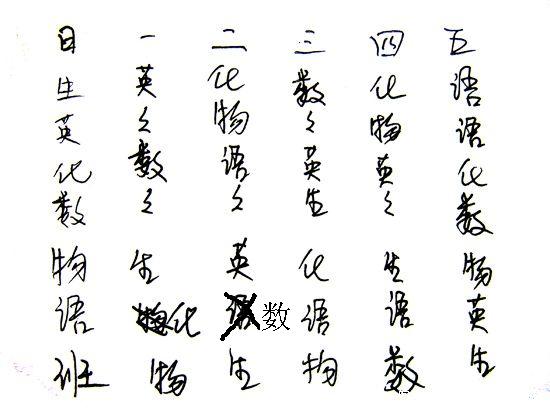 日 一 二 三 四 五
生 英 化 数 化 语
英 々 物 々 物 语
化 数 语 英 英 化
数 々 々 生 々 数
物 生 英 化 生 物
语 化 数 语 语 英
班 物 生 物 数 生